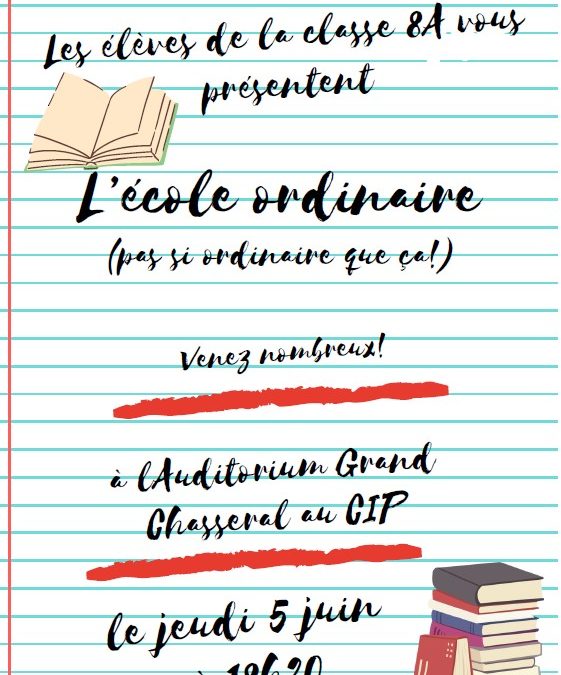 Les élèves de la classe 8A vous
présentent
L'école ordinaire
(pas si ordinaire que ça!)
Venez nombreux!
à lAuditorium Grand
Chasseral au CIP
le jeudi 5 juin
à